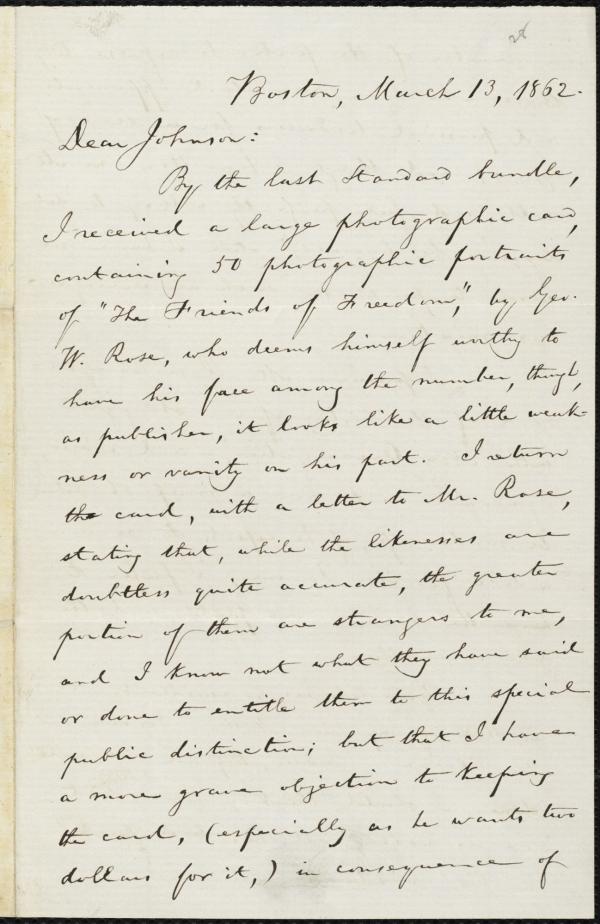 Boston, March 13, 1862.
Dear Johnson:
By the last Standard bundle,
I received a large photographic card,
containing 50 photographic portraits
of "The Friends of Freedom," by Geo.
W. Rose, who deems himself worthy to
have his face among the number, though,
as publisher, it looks like a little weak-
ness or vanity on his part. I return
the card, with a letter to Mr. Rose,
stating that, while the likenesses are
doubtless quite accurate, the greater
portion of them are strangers to me,
and I know not what they have said
or done to entitle them to this special
public distinction; but that I have
a more grave objection to keeping
the card, (especially as he wants two
dollars for it,) in consequence of